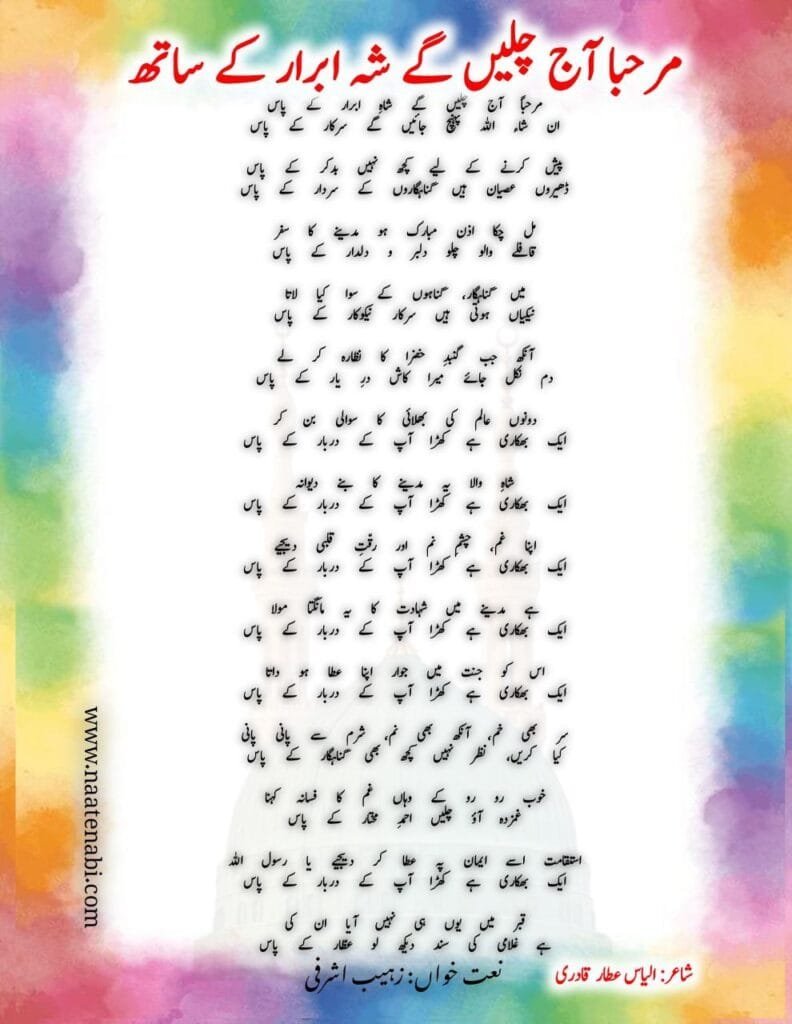 مرحبا آج چلیں گے شہ ابرار کے ساتھ
مرحبا آج چلیں گے شاہِ ابرار کے پاس
ان شاء اللہ پہنچ جائیں گے سرکار کے پاس
پیش کرنے کے لیے کچھ نہیں بدکر کے پاس
ڈھیروں عصیان ہیں گناہگاروں کے سردار کے پاس
مل چکا اذن مبارک ہو مدینے کا سفر
قافلے والو چلو دلبر و دلدار کے پاس
میں گناہگار، گناہوں کے سوا کیا لاتا
نیکیاں ہوتی ہیں سرکار نیکوکار کے پاس
آنکھ جب گنبدِ خضرا کا نظارہ کر لے
دم نکل جائے میرا کاش درِ یار کے پاس
دونوں عالم کی بھلائی کا سوالی بن کر
ایک بھکاری ہے کھڑا آپ کے دربار کے پاس
شاہِ والا یہ مدینے کا بنے دیوانہ
ایک بھکاری ہے کھڑا آپ کے دربار کے پاس
اپنا غم، چشمِ نم اور رقتِ قلبی دیجیے
ایک بھکاری ہے کھڑا آپ کے دربار کے پاس
ہے مدینے میں شہادت کا یہ مانگتا مولا
ایک بھکاری ہے کھڑا آپ کے دربار کے پاس
اس کو جنت میں جوار اپنا عطا ہو داتا
ایک بھکاری ہے کھڑا آپ کے دربار کے پاس
سر بھی خم، آنکھ بھی نم، شرم سے پانی پانی
کیا کریں، نظر نہیں کچھ بھی گناہگار کے پاس
خوب رو رو کے وہاں غم کا فسانہ کہنا
غمزدہ آؤ چلیں احمدِ مختار کے پاس
استقامت اسے ایمان پہ عطا کر دیجیے یا رسول اللہ
ایک بھکاری ہے کھڑا آپ کے دربار کے پاس
قبر میں یوں ہی نہیں آیا ان کی
ہے غلامی کی سند دیکھ لو عطار کے پاس
شاعر: الیاس عطار قادری
نعت خواں: زہیب اشرفی
www.naatenabi.com